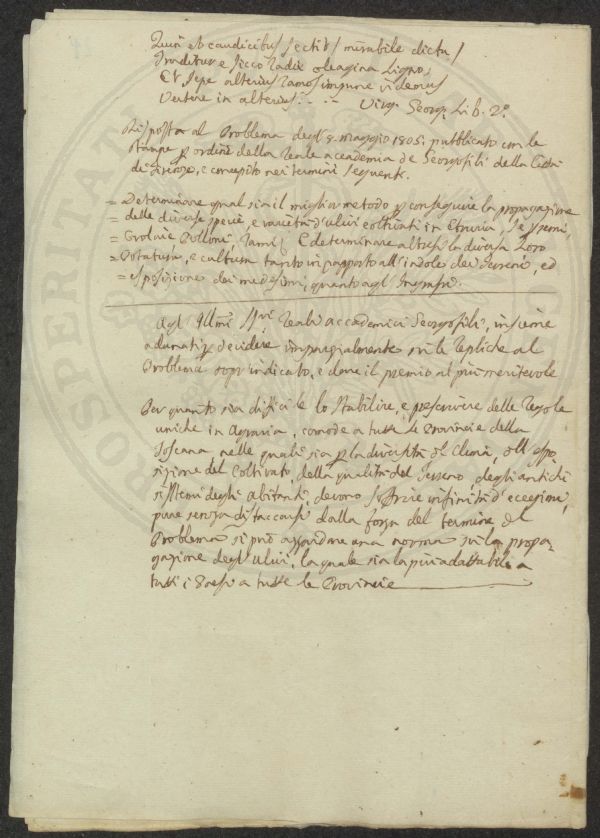 Quin et caudicibus sectis / mirabile dictu /
Truditur e sicco radix oleagina ligno,
Et sepe alterius ramos impune videmus
Vertere in alterius. . . . Virg. Georg. Lib. 2º.
Risposta al Problema degl' 8. maggio 1805. pubblicato con le
stampe p ordine della Reale accademia de Georgofili della Città
di Firenze, e concepito nei termini seguenti.
= Determinare qual sia il miglior metodo p conseguire la propagazione
= delle diverse specie, e varietà d'ulivi coltivati in Etruria, se p semi,
= Ovolaie, Polloni, rami; E determinare altresì la diversa Loro
= Potatura, e cultura tanto in rapporto all'indole dei Terreni, ed
= esposizione dei medesimi, quanto agl' Ingrassi.
Agl' Illmi Sri Reali accademici Georgofili, insieme
adunati p decidere imparzialmente su le repliche al
Problema sopr'indicato, e dare il premio al più meritevole
Per quanto sia difficile lo stabilire, e prescrivere delle regole
uniche in Agraria, comode a tutte le Provincie della
Toscana, nelle quali sia p la diversità di Climi, dell'espo-
sizione del Coltivato, della qualità del Terreno, degli antichi
sistemi degli abitanti, devono infinità d'ecezioni,
pure senza distaccarsi dalla forza del termine del
Problema si può assegnare una norma su la propa-
gazione degl' ulivi, la quale sia la più adattabile a
tutti i Paesi a tutte le Provincie
PROSPERITATI